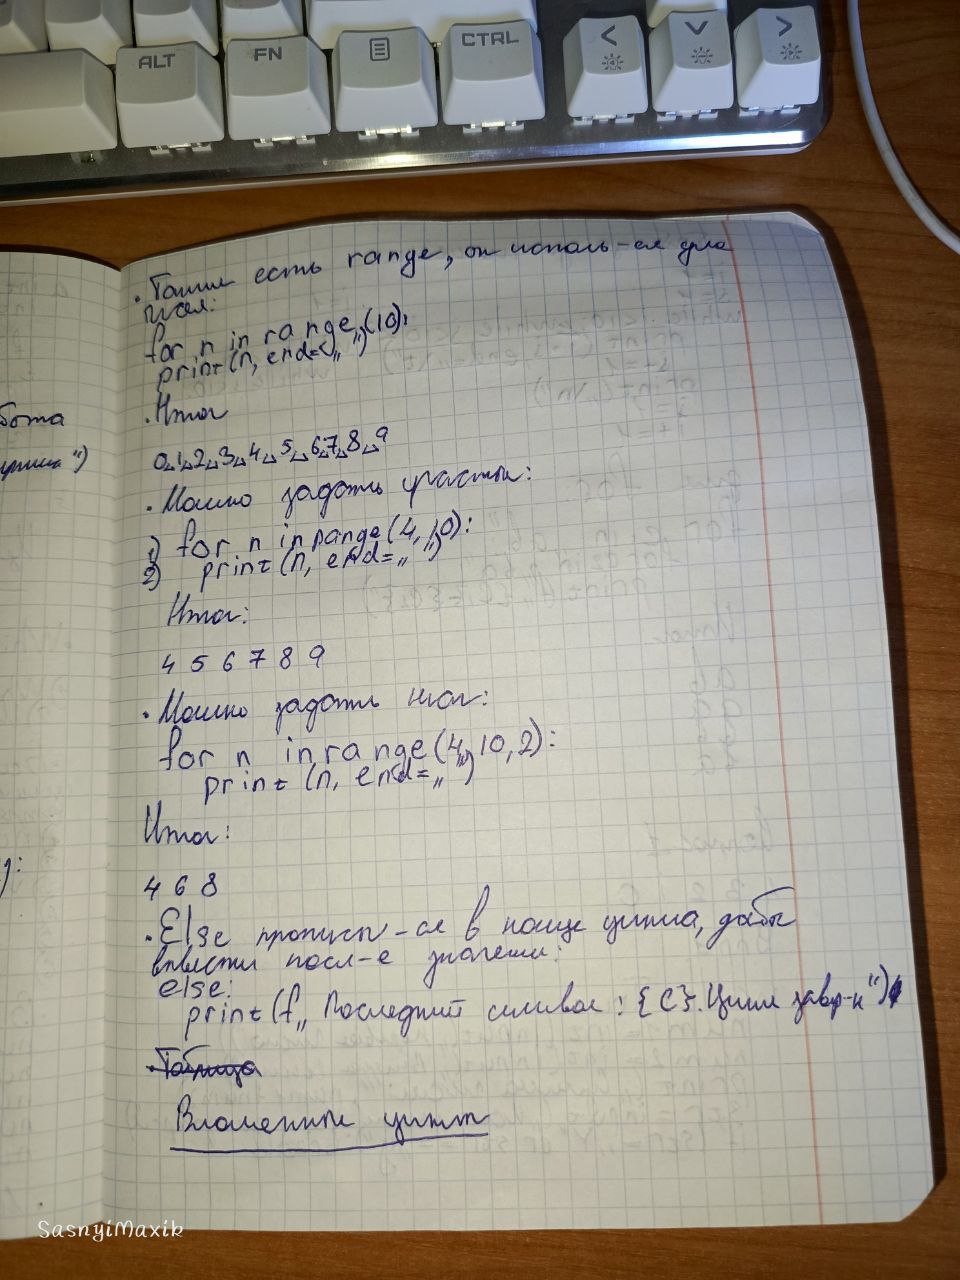 ALT
FN
CTRL
<
>
бота
")
):
· Также есть range, он исполь-ся для
чисел:
for n in range (10):
print (n, end=„ ")
· Итог
0␣1␣2␣3␣4␣5␣6␣7␣8␣9
· Можно задать участы:
1) for n in range (4, 10):
2) print (n, end=„ ")
Итог:
4 5 6 7 8 9
· Можно задать шаг:
for n in range (4, 10, 2):
print (n, end=„ ")
Итог:
4 6 8
· Else прописы-ся в конце цикла, дабы
вывести посл-е значение:
else:
print (f„ Последний символ : {C}. Цикл завер-н")
· Таблица
Вложенные циклы
SasnyiMaxik